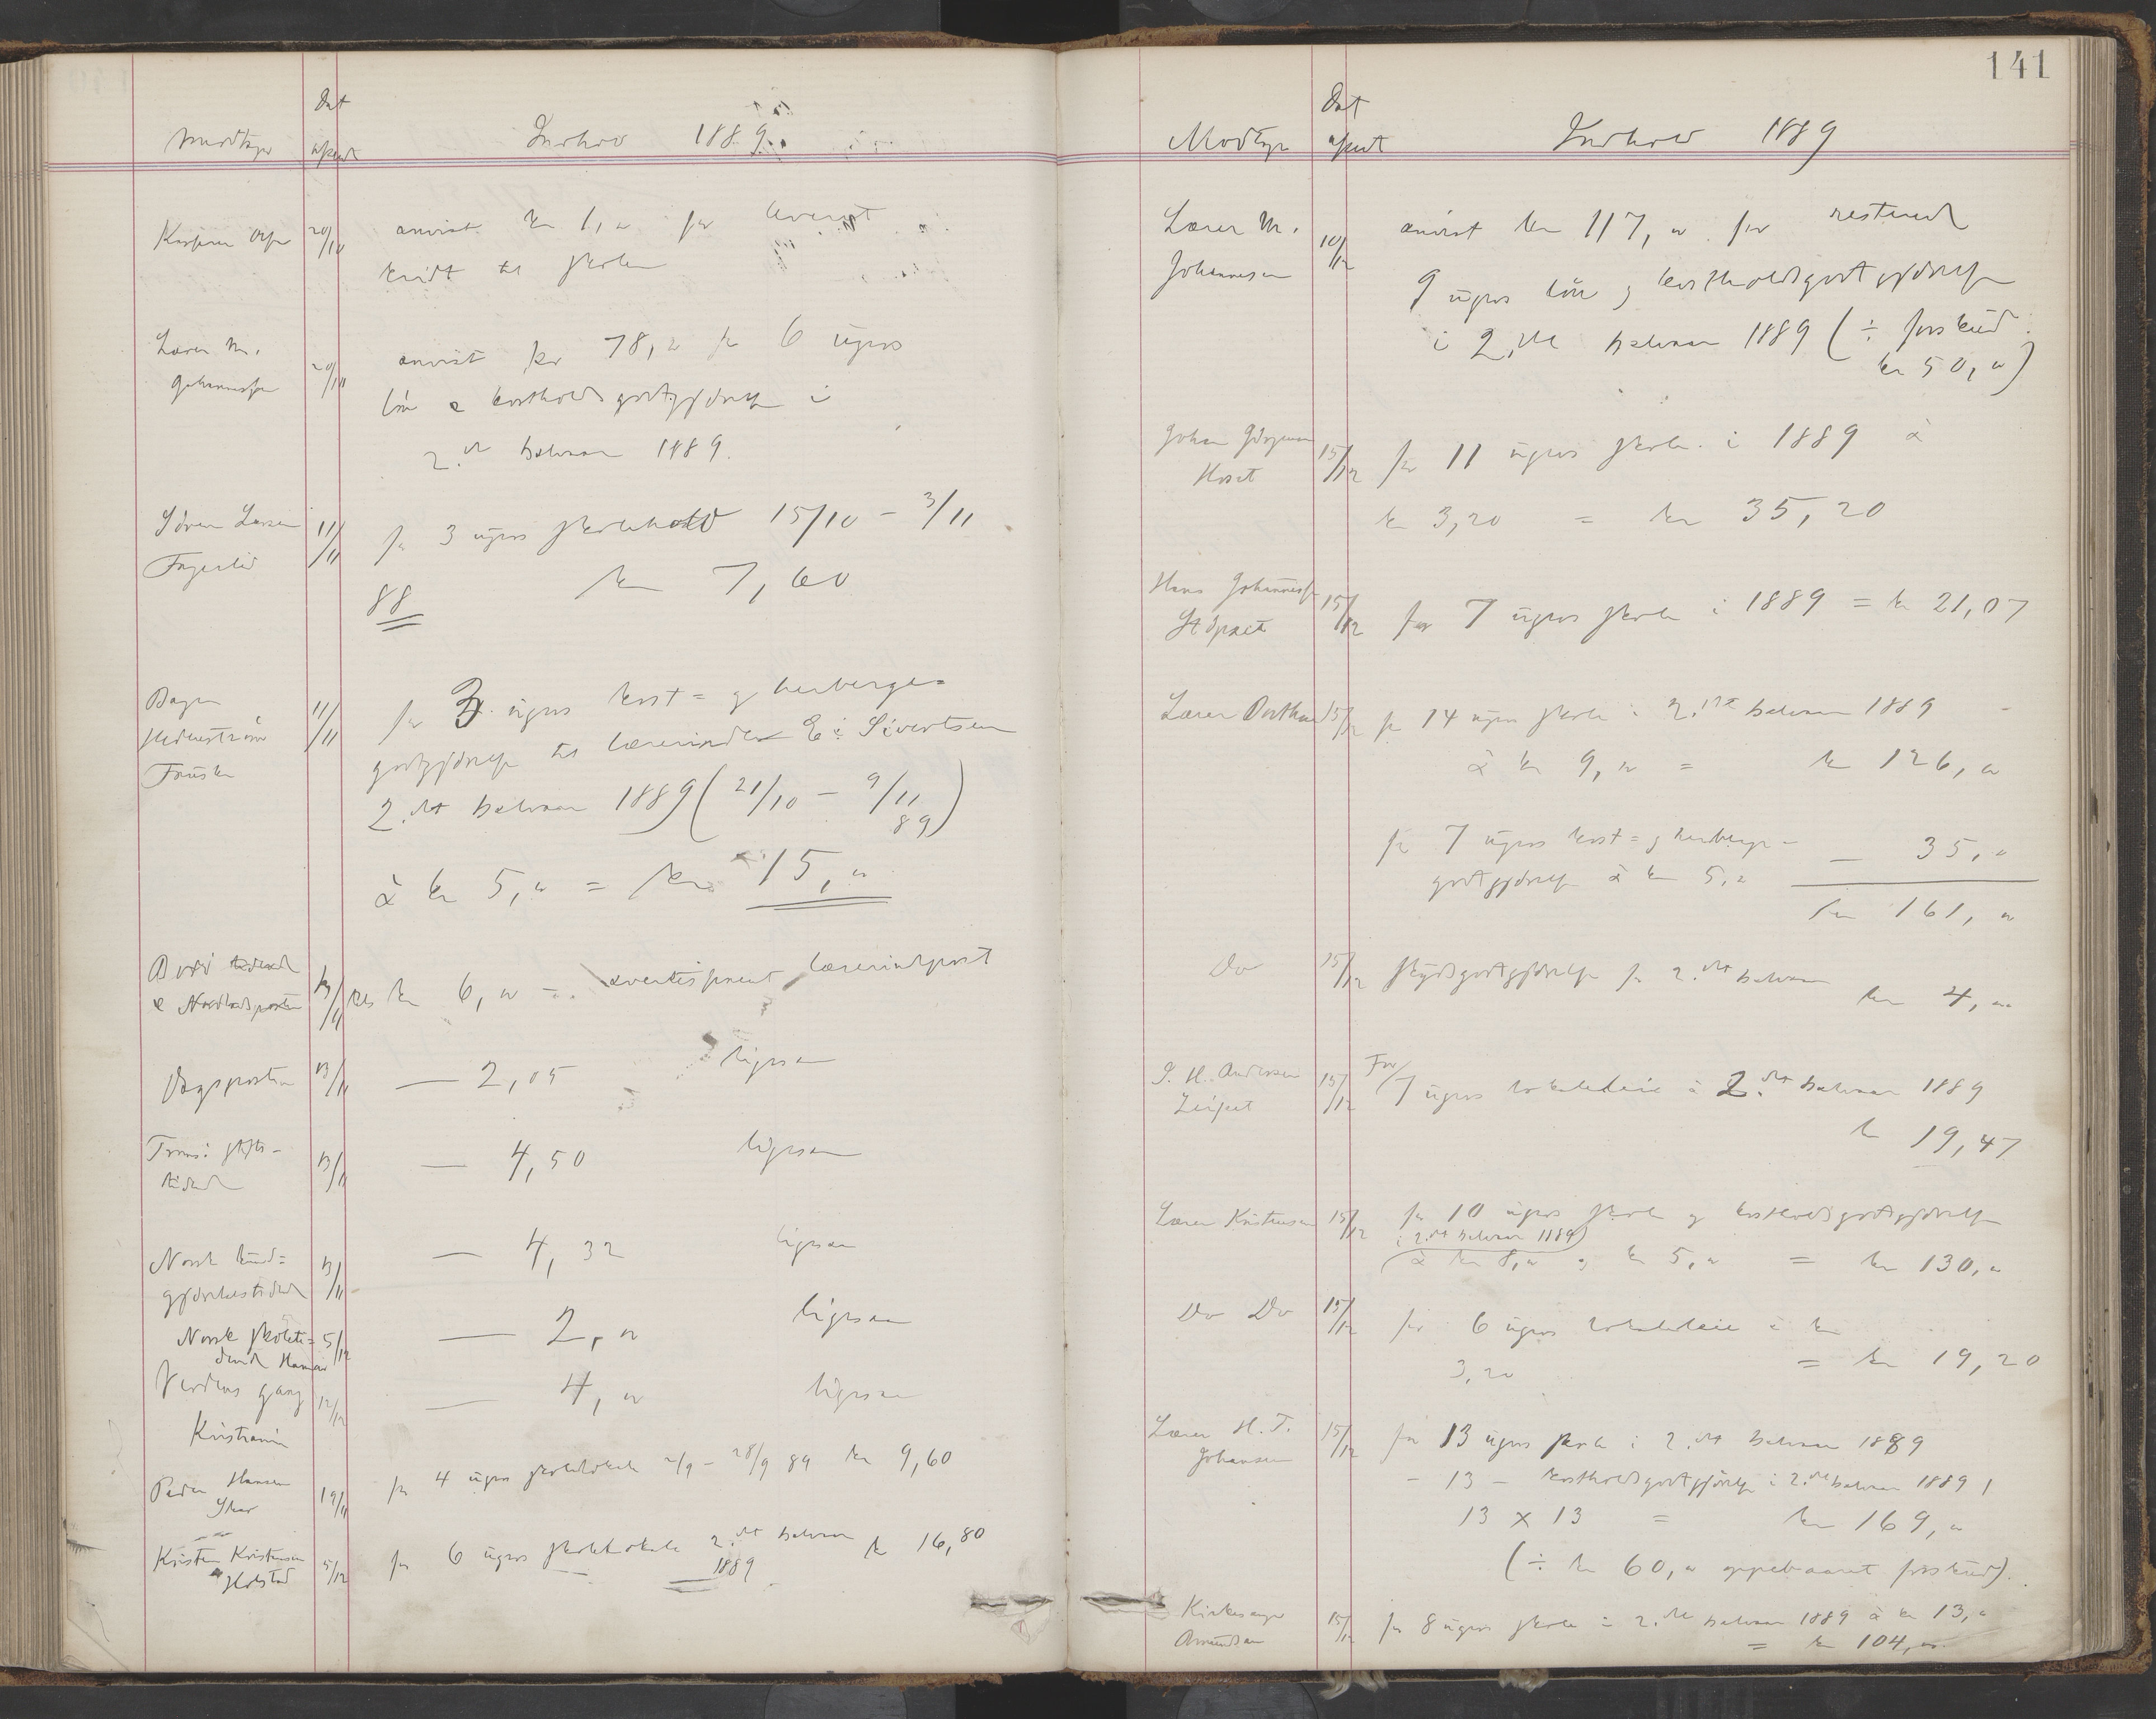 Dat
Modtager afsendt Indhold 1889
20/10 anvist kr 1,00 for leveret
kridt til skolen
Lærer M. 20/11 anvist kr 78,00 for 6 ugers
Johannessen
løn & kostholdsgodtgjørelse i
2.det halvaar 1889.
Søren Larsen 11/11 for 3 ugers skolehold 15/10 - 3/11
Fagerlid
88 kr 7,60
11/11 for 3 ugers kost= og herberge=
godtgjørelse til lærerinde E. Sivertsen
Fauske
2.det halvaar 1889 (21/10 - 9/11
89)
à kr 5,00 = kr 15,00
Bodø tidende
& Nordlandsposten 13/11 kr 6,00 avertissement lærerindepost
Dagsposten 13/11 — 2,05 ligesaa
Troms: stifts- 13/11 — 4,50 ligesaa
tidende
Norsk kund= 13/11 — 4,32 ligesaa
gjørelsestidende
Norsk skoleti= 5/12 — 2,00 ligesaa
dende Hamar
Verdens gang 12/12 — 4,00 ligesaa
Kristiania
Peder Hansen 19/11 for 4 ugers skolelokale 2/9 - 28/9 89 kr 9,60
Kristen Kristensen 5/12 for 6 ugers skolelokale 2.det halvaar kr 16,80
Holstad 1889
141
Dat
Modtager afsendt Indhold 1889
Lærer M. 10/12 anvist kr 117,00 for resterende
Johannesen
9 ugers løn og kostholdsgodtgjørelse
i 2.det halvaar 1889 (÷ forskud
kr 50,00)
Johan Jørgensen 15/12 for 11 ugers skole i 1889 à
Hoset
kr 3,20 = kr 35,20
Hans Johannessen 15/12 for 7 ugers skole i 1889 = kr 21,07
Lærer 15/12 for 14 ugers skole i 2.det halvaar 1889
à kr 9,00 = kr 126,00
for 7 ugers kost= og herberge- — 35,00
godtgjørelse à kr 5,00
kr 161,00
Do 15/12 skydsgodtgjørelse for 2.det halvaar
kr 4,00
Andersen 15/12 For 7 ugers lokaleleie i 2.det halvaar 1889
kr 19,47
Lærer Kristensen 15/12 for 10 ugers skole og kostholdsgodtgjørelse
(i 2.det halvaar 1889)
à kr 8,00 og kr 5,00 = kr 130,00
Do Do 15/12 for 6 ugers lokaleleie à kr
3,20 = kr 19,20
Lærer H. T. 15/12 for 13 ugers skole i 2.det halvaar 1889
Johansen
- 13 - kostholdsgodtgjørelse i 2.det halvaar 1889
13 x 13 = kr 169,00
(÷ kr 60,00 oppebaaret forskud).
Kirkesanger 15/12 for 8 ugers skole i 2.det halvaar 1889 à kr 13,00
Amundsen = kr 104,00